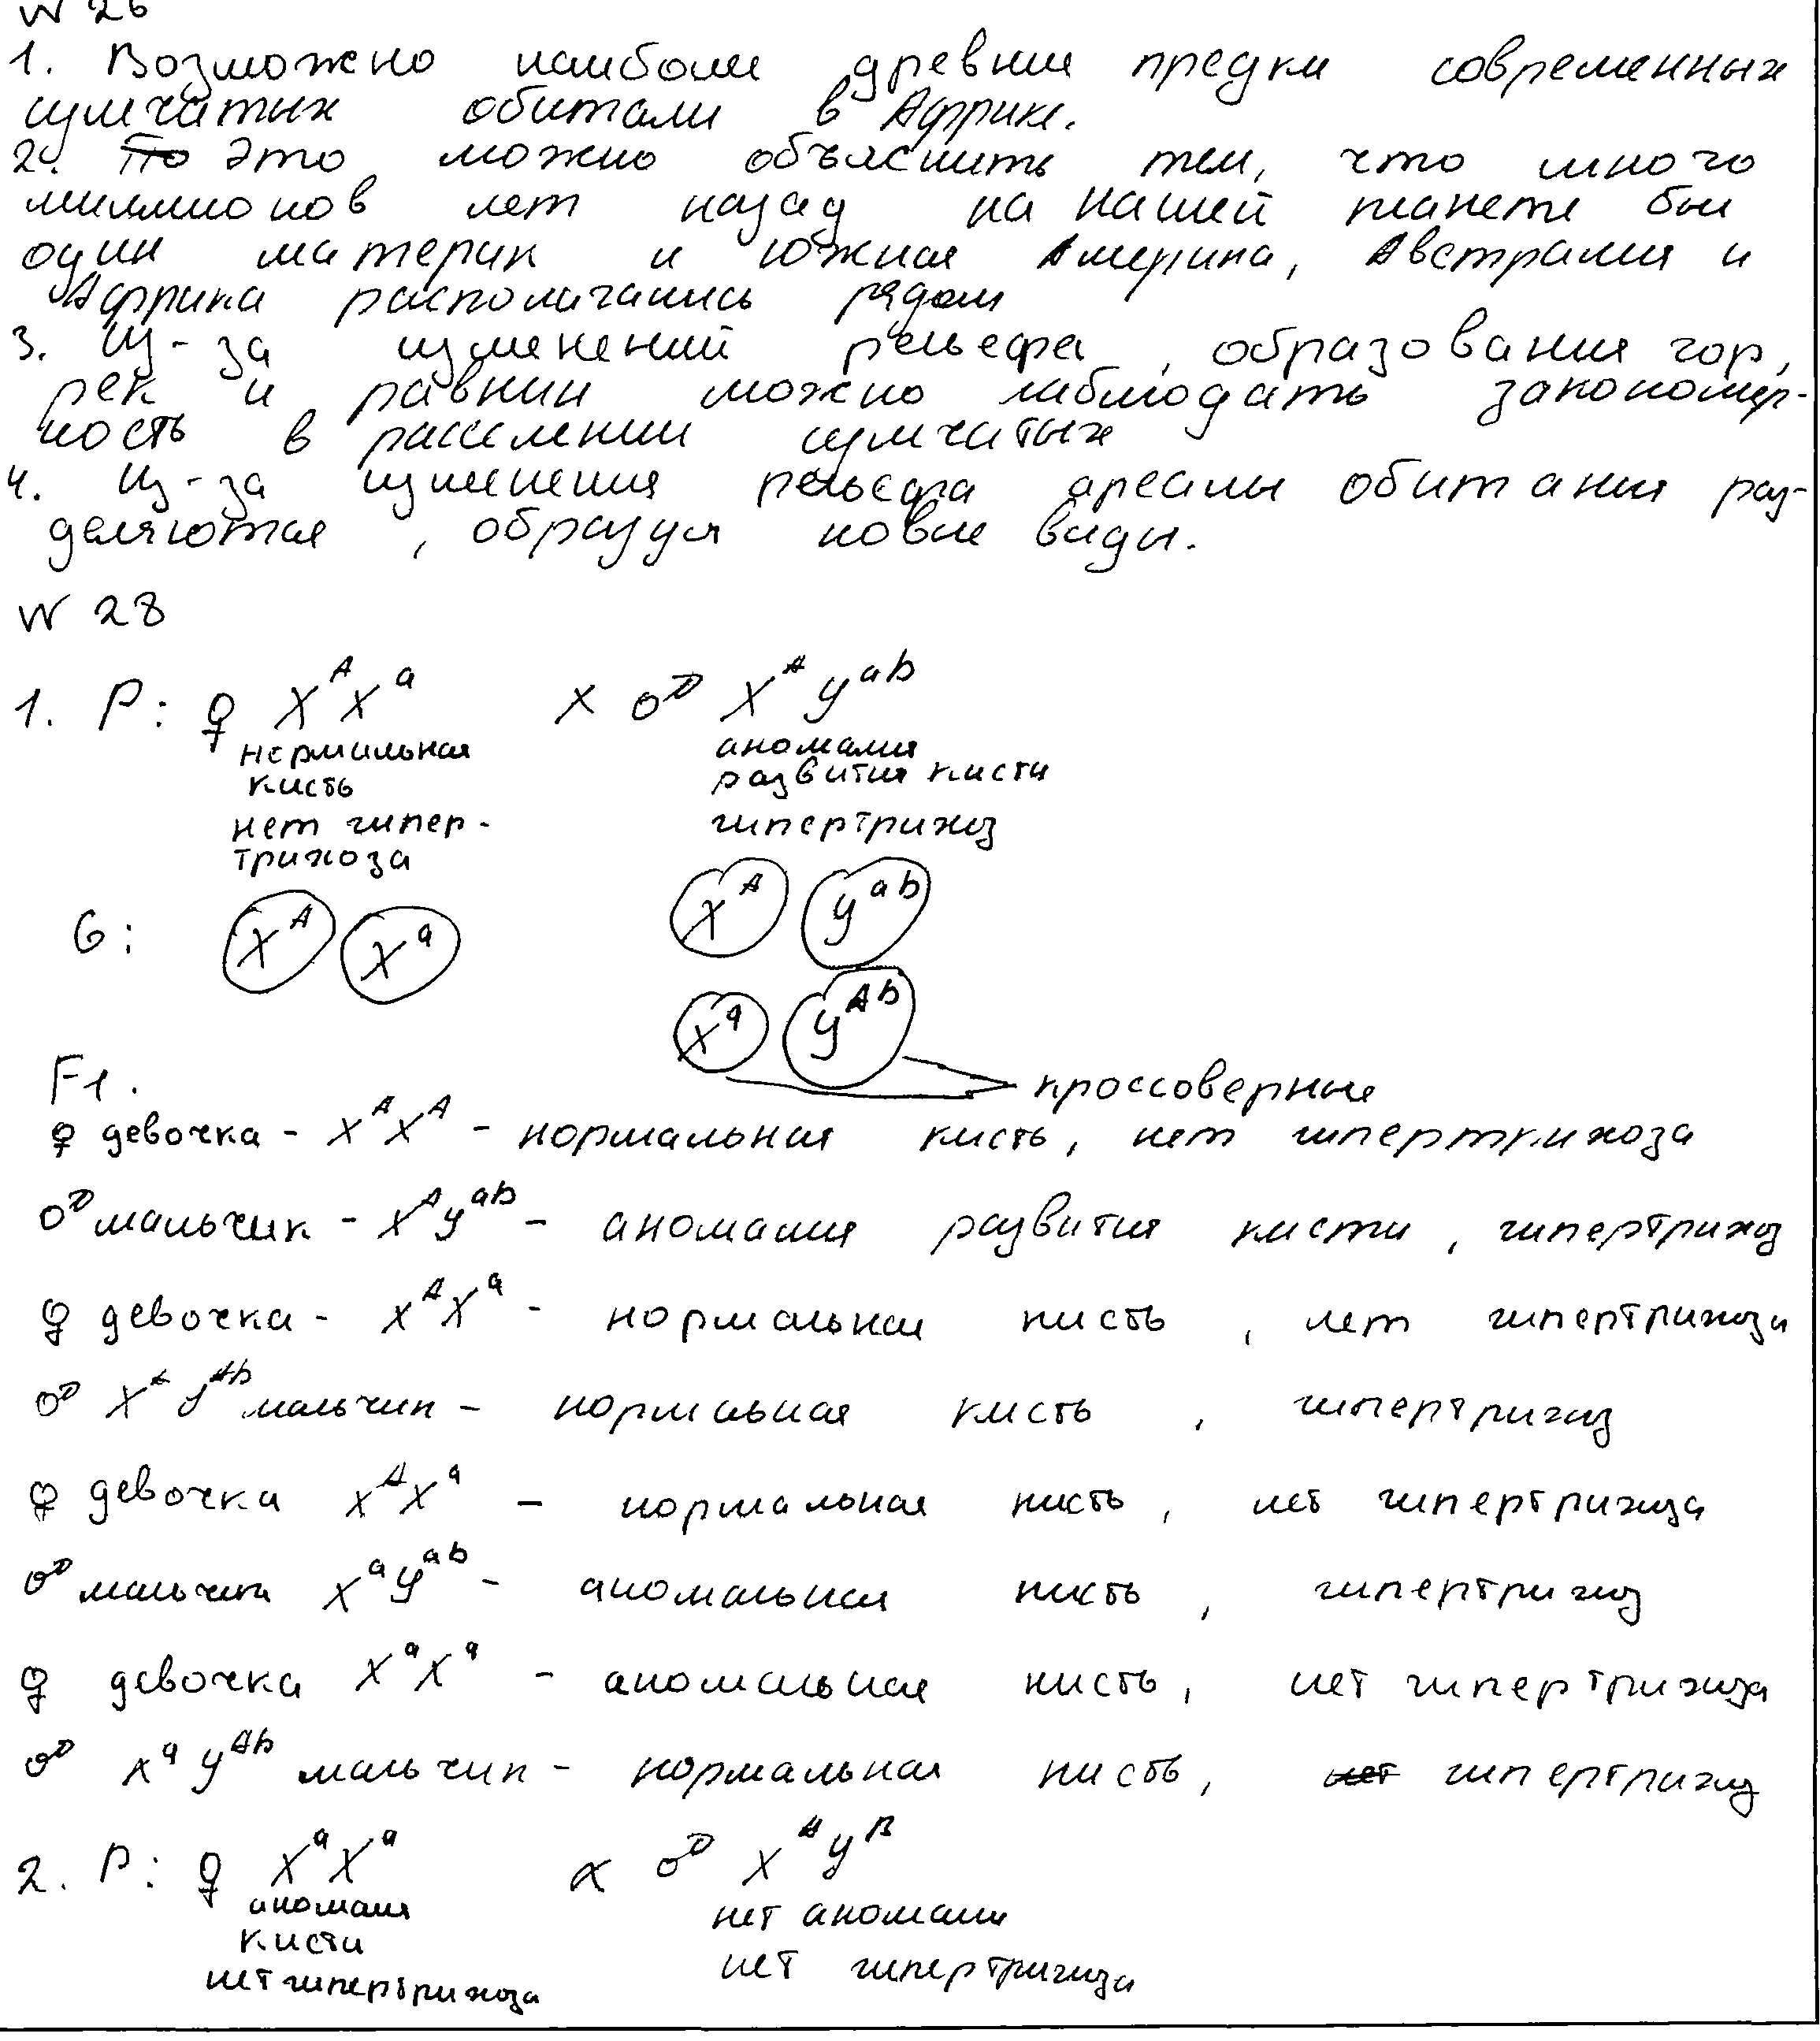 N 26
1. Возможно наиболее древние предки современных
сумчатых обитали в Африке.
2. По Это можно объяснить тем, что много
миллионов лет назад на нашей планете был
один материк и Южная Америка, Австралия и
Африка располагались рядом
3. Из-за изменений рельефа, образования гор,
рек и равнин можно наблюдать закономер-
ность в расселении сумчатых
4. Из-за изменения рельефа ареалы обитания раз-
деляются, образуя новые виды.
N 28
1. P: ♀ X^A X^a × ♂ X^A Y^ab
нормальная аномалия
кисть развития кисти
нет гипер- гипертрихоз
трихоза
G: X^A X^a X^A Y^ab
X^a Y^Ab
кроссоверные
F1.
♀ девочка - X^A X^A - нормальная кисть, нет гипертрихоза
♂ мальчик - X^A Y^ab - аномалия развития кисти, гипертрихоз
♀ девочка - X^A X^a - нормальная кисть, нет гипертрихоза
♂ X^A Y^Ab мальчик - нормальная кисть, гипертрихоз
♀ девочка X^A X^a - нормальная кисть, нет гипертрихоза
♂ мальчик X^a Y^ab - аномальная кисть, гипертрихоз
♀ девочка X^a X^a - аномальная кисть, нет гипертрихоза
♂ X^a Y^Ab мальчик - нормальная кисть, нет гипертрихоз
2. P: ♀ X^a X^a × ♂ X^A Y^B
аномалия нет аномалии
кисти нет гипертрихоза
нет гипертрихоза